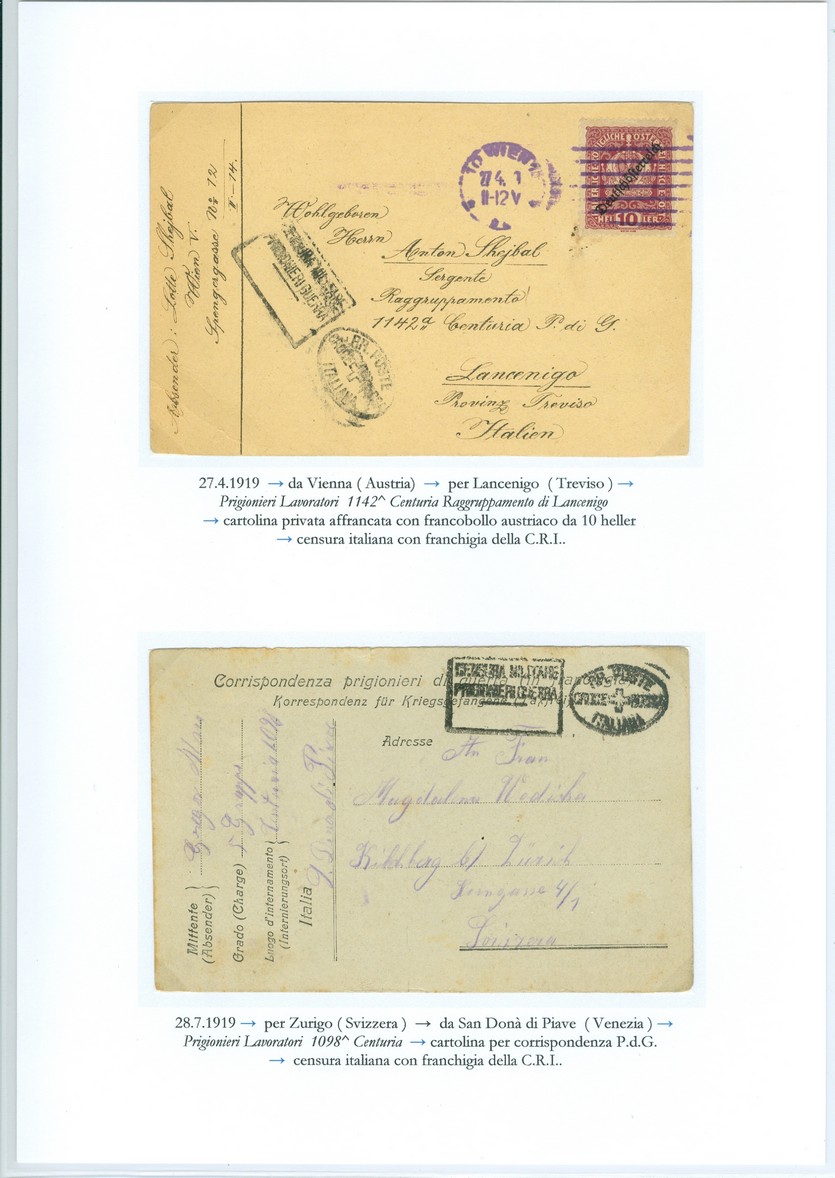 Absender: Lotte Shejbal
Wien V.
Spengergasse No 12
II-14.
10 WIEN
27 4. 1
11-12V
KÖNIGLICHE ÖSTER
Deutschösterreich
HEL 10 LER
Wohlgeboren
Herrn
Anton Shejbal
Sergente
Raggruppamento
1142a Centuria P. di G.
Lancenigo
Provinz Treviso
Italien
CENSURA MILITARE
PRIGIONIERI GUERRA
RR. POSTE
CROCE ROSSA
ITALIANA
27.4.1919 → da Vienna ( Austria) → per Lancenigo ( Treviso ) →
Prigionieri Lavoratori 1142^ Centuria Raggruppamento di Lancenigo
→ cartolina privata affrancata con francobollo austriaco da 10 heller
→ censura italiana con franchigia della C.R.I..
Corrispondenza prigionieri di guerra (in franchigia)
Korrespondenz für Kriegsgefangene
CENSURA MILITARE
PRIGIONIERI GUERRA
RR. POSTE
CROCE ROSSA
ITALIANA
Mittente
(Absender)
Grado (Charge)
Luogo d'internamento
(Internierungsort)
Centuria 1098
Italia
Adresse
An Frau
Magdalena
Kilchberg b/ Zürich
4/1
Svizzera
28.7.1919 → per Zurigo ( Svizzera ) → da San Donà di Piave ( Venezia ) →
Prigionieri Lavoratori 1098^ Centuria → cartolina per corrispondenza P.d.G.
→ censura italiana con franchigia della C.R.I..